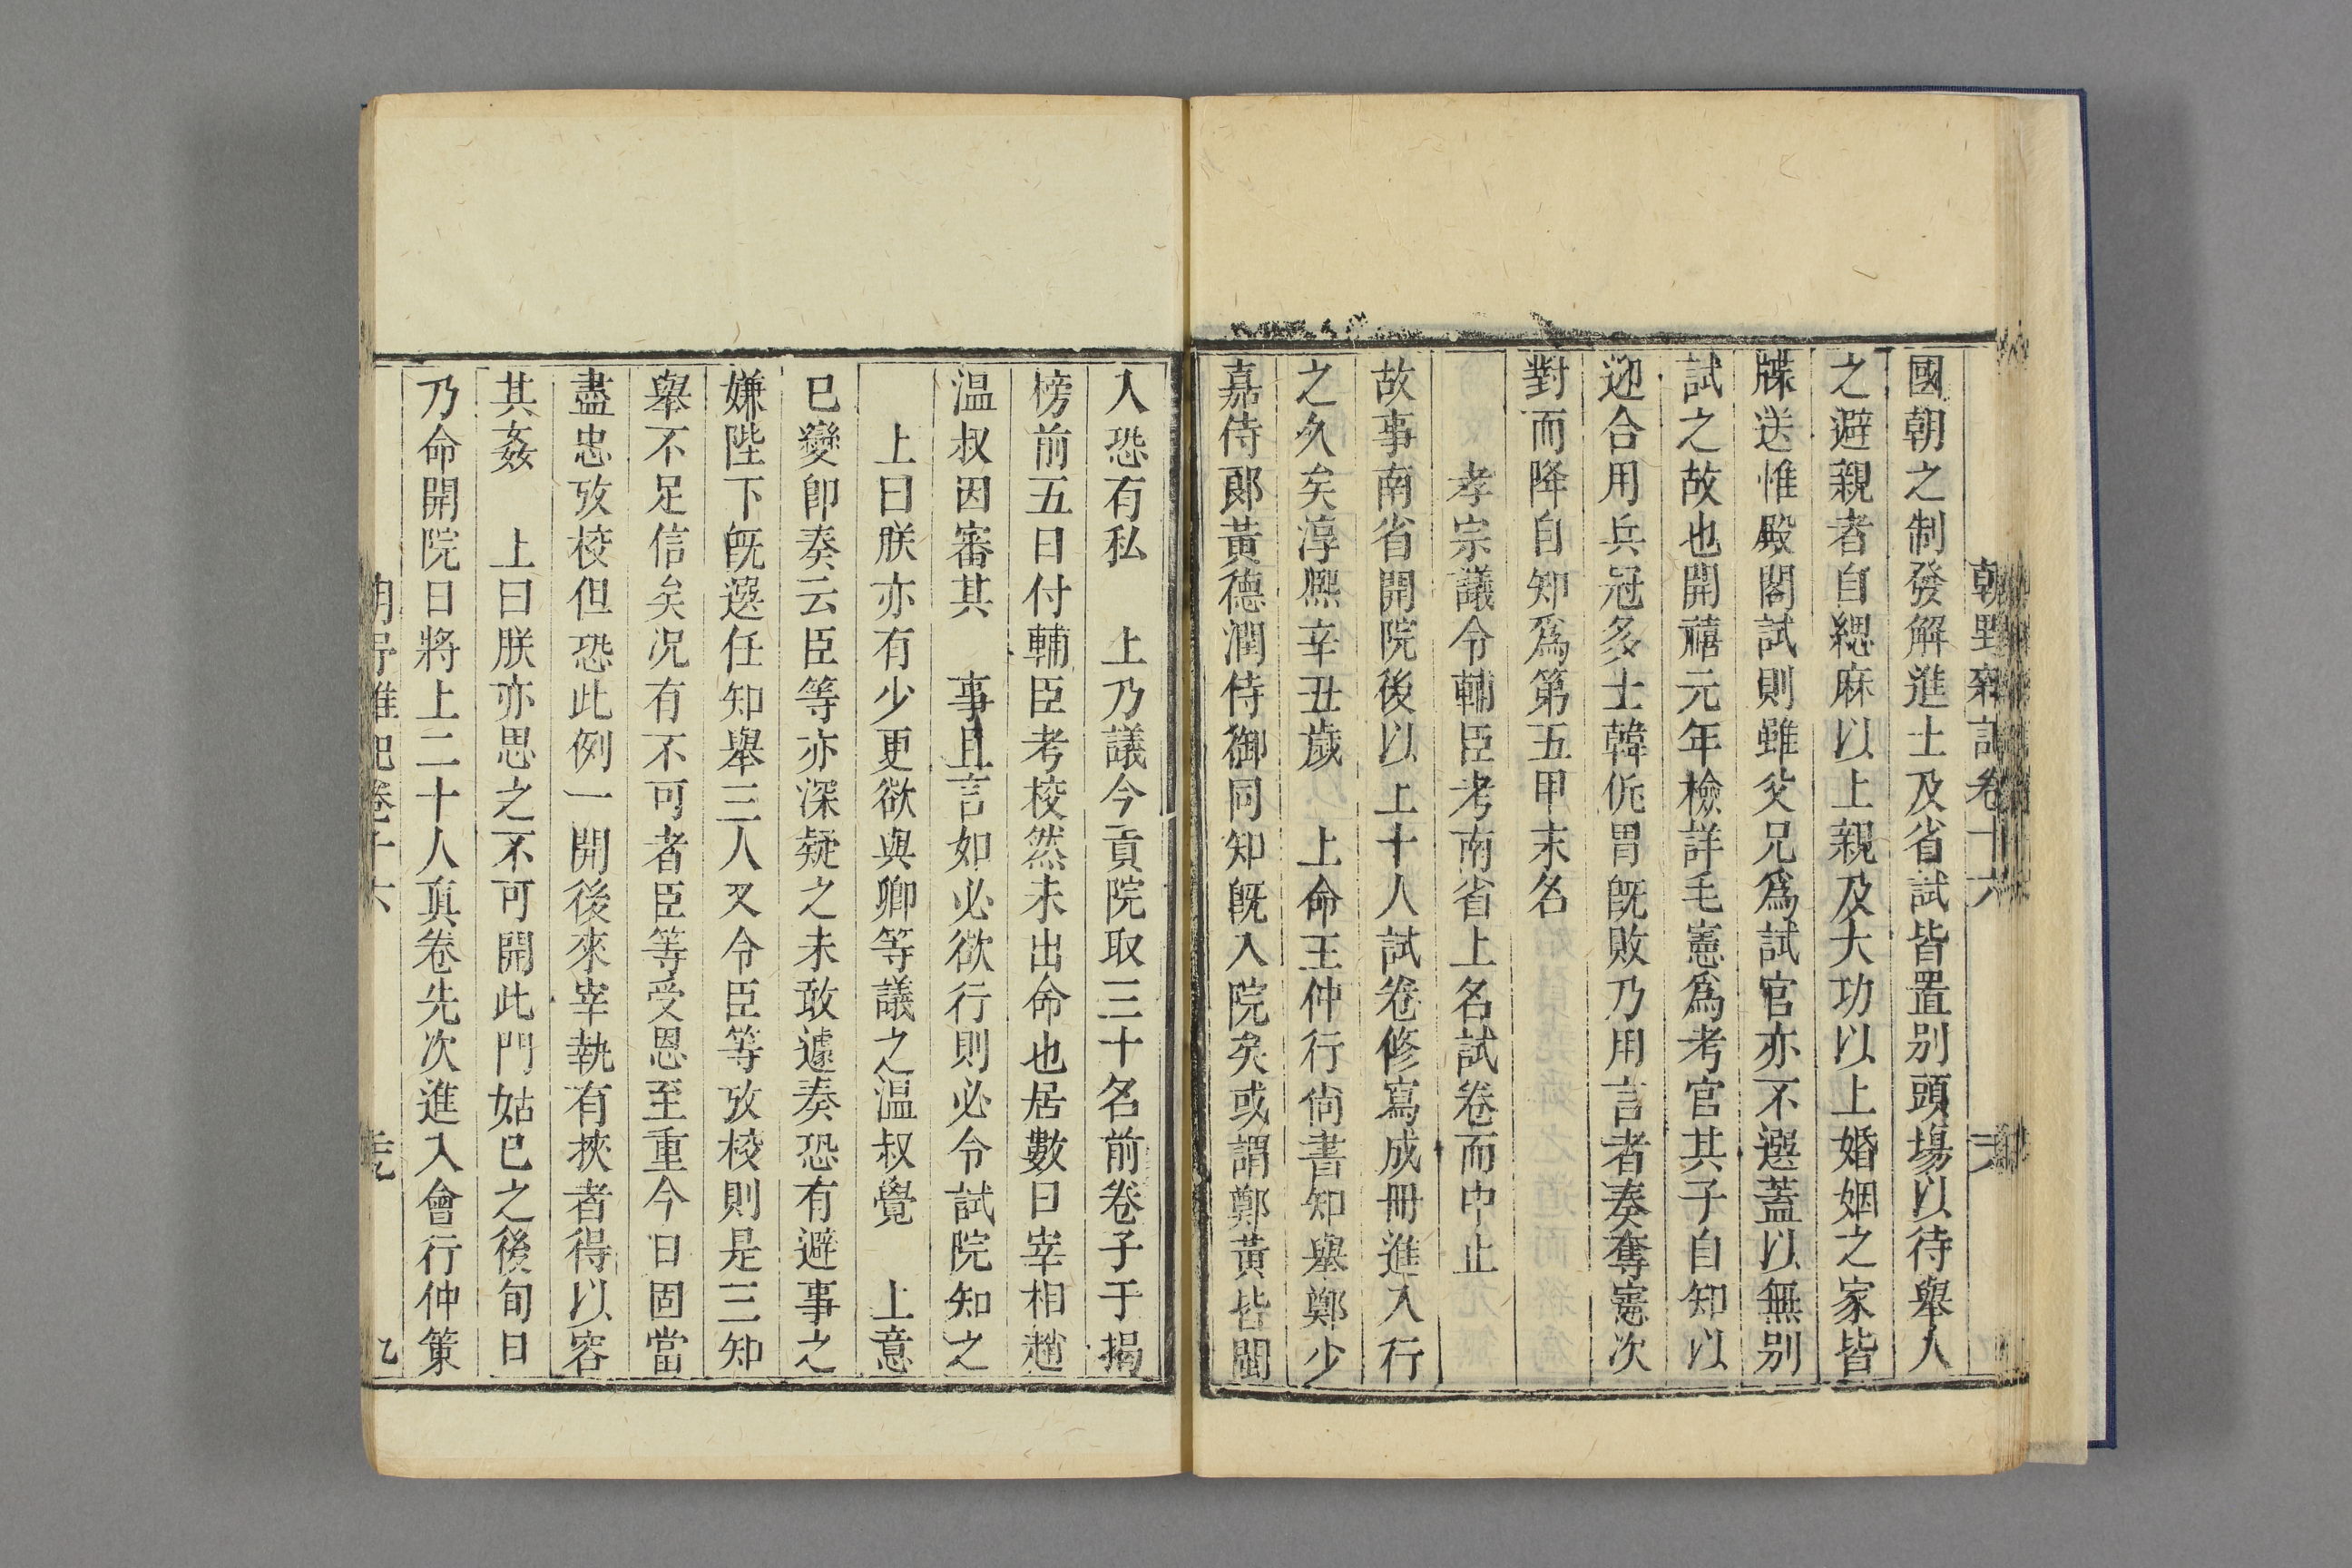 朝野雜記卷十六
國朝之制發解進士及省試皆置别頭場以待舉人
之避親者自緦麻以上親及大功以上婚姻之家皆
牒送惟殿閣試則雖父兄爲試官亦不選蓋以無别
試之故也開禧元年檢詳毛憲爲考官其子自知以
迎合用兵冠多士韓侂胄旣敗乃用言者奏奪憲次
對而降自知爲第五甲末名
孝宗議令輔臣考南省上名試卷而中止
故事南省開院後以上十人試卷修寫成冊進入行
之久矣淳熈辛丑歲 上命王仲行尚書知舉鄭少
嘉侍郎黃德潤侍御同知旣入院矣或謂鄭黃皆閩
人恐有私 上乃議今貢院取三十名前卷子于揭
榜前五日付輔臣考校然未出命也居數日宰相趙
温叔因審其 事且言如必欲行則必令試院知之
上曰朕亦有少更欲與卿等議之温叔覺 上意
已變卽奏云臣等亦深疑之未敢遽奏恐有避事之
嫌陛下旣選任知舉三人又令臣等攷校則是三知
舉不足信矣况有不可者臣等受恩至重今日固當
盡忠攷校但恐此例一開後來宰執有挾者得以容
其姦 上曰朕亦思之不可開此門姑已之後旬日
乃命開院日將上二十人真卷先次進入會行仲策
卷十六
九